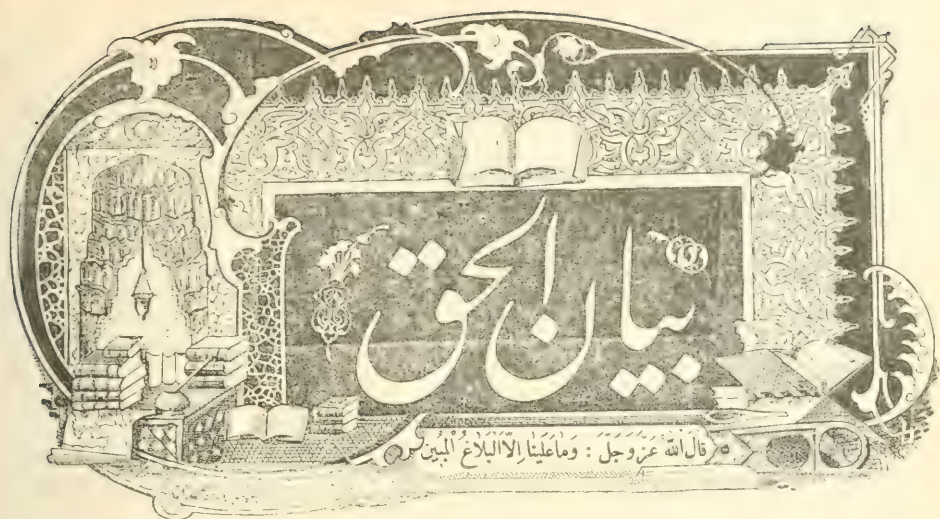 بيان الحق
قَالَ اللّٰهُ عَزَّ وَجَلَّ : وَمَا عَلَيْنَا اِلَّا الْبَلَاغُ الْمُبِينُ